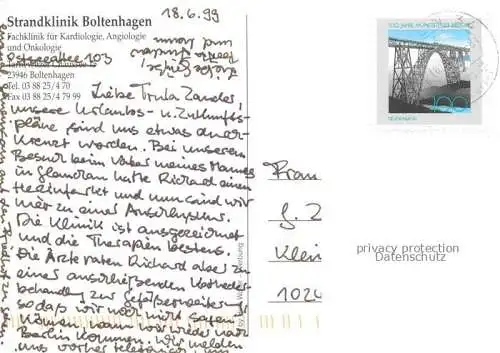 18.6.99
Strandklinik Boltenhagen
Fachklinik für Kardiologie, Angiologie
und Onkologie
Ostseeallee 103
23946 Boltenhagen
Tel. 03 88 25/4 70
Fax 03 88 25/4 79 99
Liebe Trula Zander,
unsere Urlaubs- u. Zukunfts-
pläne sind uns etwas durch-
kreuzt worden. Bei unserem
Besuch beim Vater meines Mannes
in hatte Richard einen
Herzinfarkt und nun sind wir
hier zu einer Anschlusskur.
Die Klinik ist ausgezeichnet
und die Therapien bestens.
Die Ärzte raten Richard aber zu
einer anschließenden Katheder-
behandlung zur Gefäßerweiterung
so daß wir noch nicht sagen
können, wann wir wieder nach
Berlin kommen. Wir melden
uns vorher telefonisch, um
100 JAHRE MÜNGSTENER BRÜCKE
100
DEUTSCHLAND
Frau
G. Z
Klein
1024
privacy protection
Datenschutz